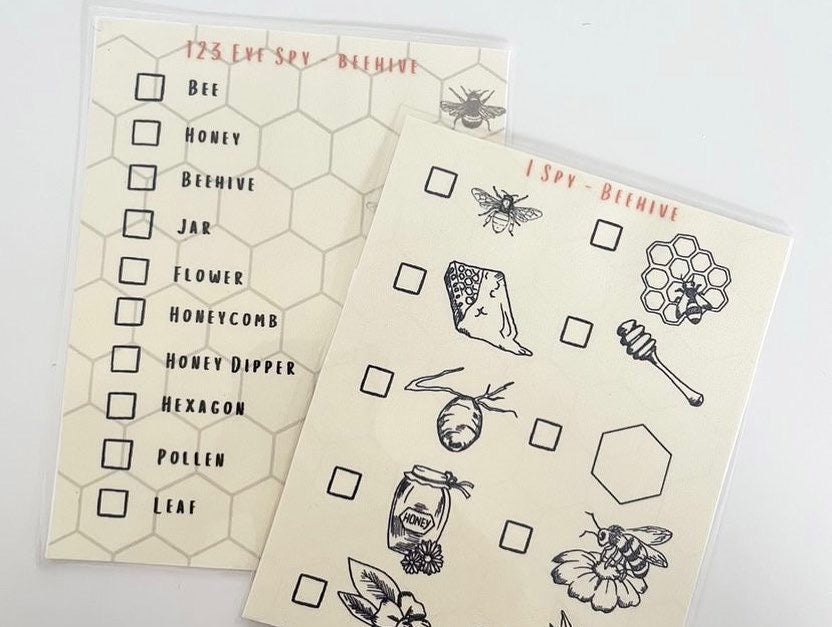 123 Eye Spy - Beehive
Bee
Honey
Beehive
Jar
Flower
Honeycomb
Honey Dipper
Hexagon
Pollen
Leaf
I Spy - Beehive
HONEY